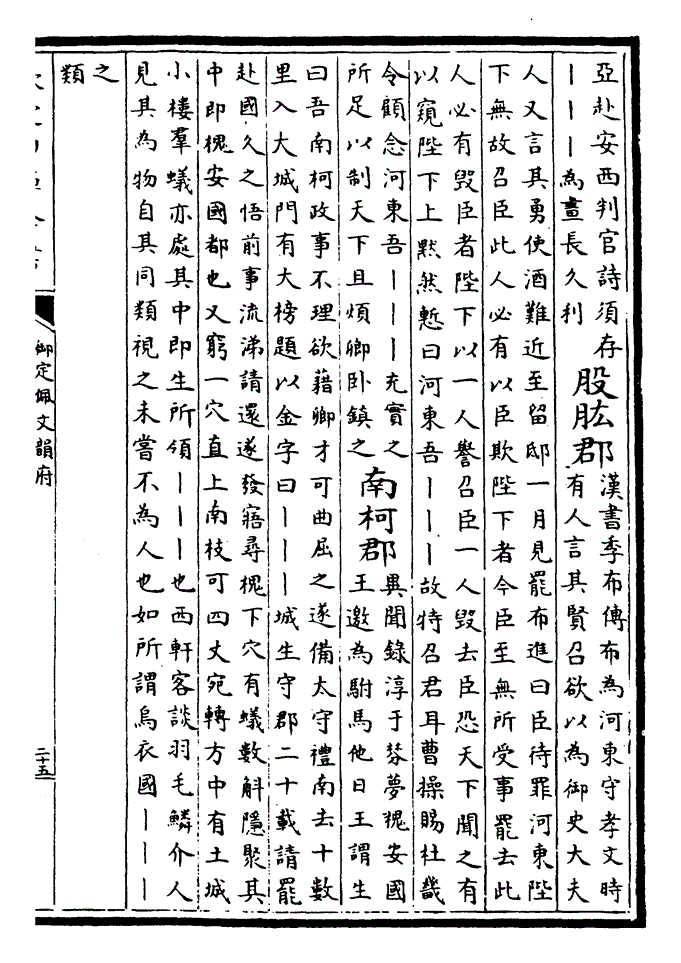 亞赴安西判官詩須存
丨丨丨為畫長久利
股肱郡
漢書季布傳布為河東守孝文時
有人言其賢召欲以為御史大夫
人又言其勇使酒難近至留邸一月見罷布進曰臣待罪河東陛
下無故召臣此人必有以臣欺陛下者今臣至無所受事罷去此
人必有毀臣者陛下以一人譽召臣一人毀去臣恐天下聞之有
以窺陛下上黙然慙曰河東吾丨丨丨故特召君耳曹操賜杜畿
令顧念河東吾丨丨丨充實之
所足以制天下且煩卿卧鎮之
南柯郡
異聞錄淳于棼夢槐安國
王邀為駙馬他日王謂生
曰吾南柯政事不理欲藉卿才可曲屈之遂備太守禮南去十數
里入大城門有大榜題以金字曰丨丨丨城生守郡二十載請罷
赴國久之悟前事流涕請還遂發寤尋槐下穴有蟻數斛隱聚其
中即槐安國都也又窮一穴直上南枝可四丈宛轉方中有土城
小樓羣蟻亦處其中即生所領丨丨丨也西軒客談羽毛鱗介人
見其為物自其同類視之未嘗不為人也如所謂烏衣國丨丨丨
之
類
御定佩文韻府
二十五